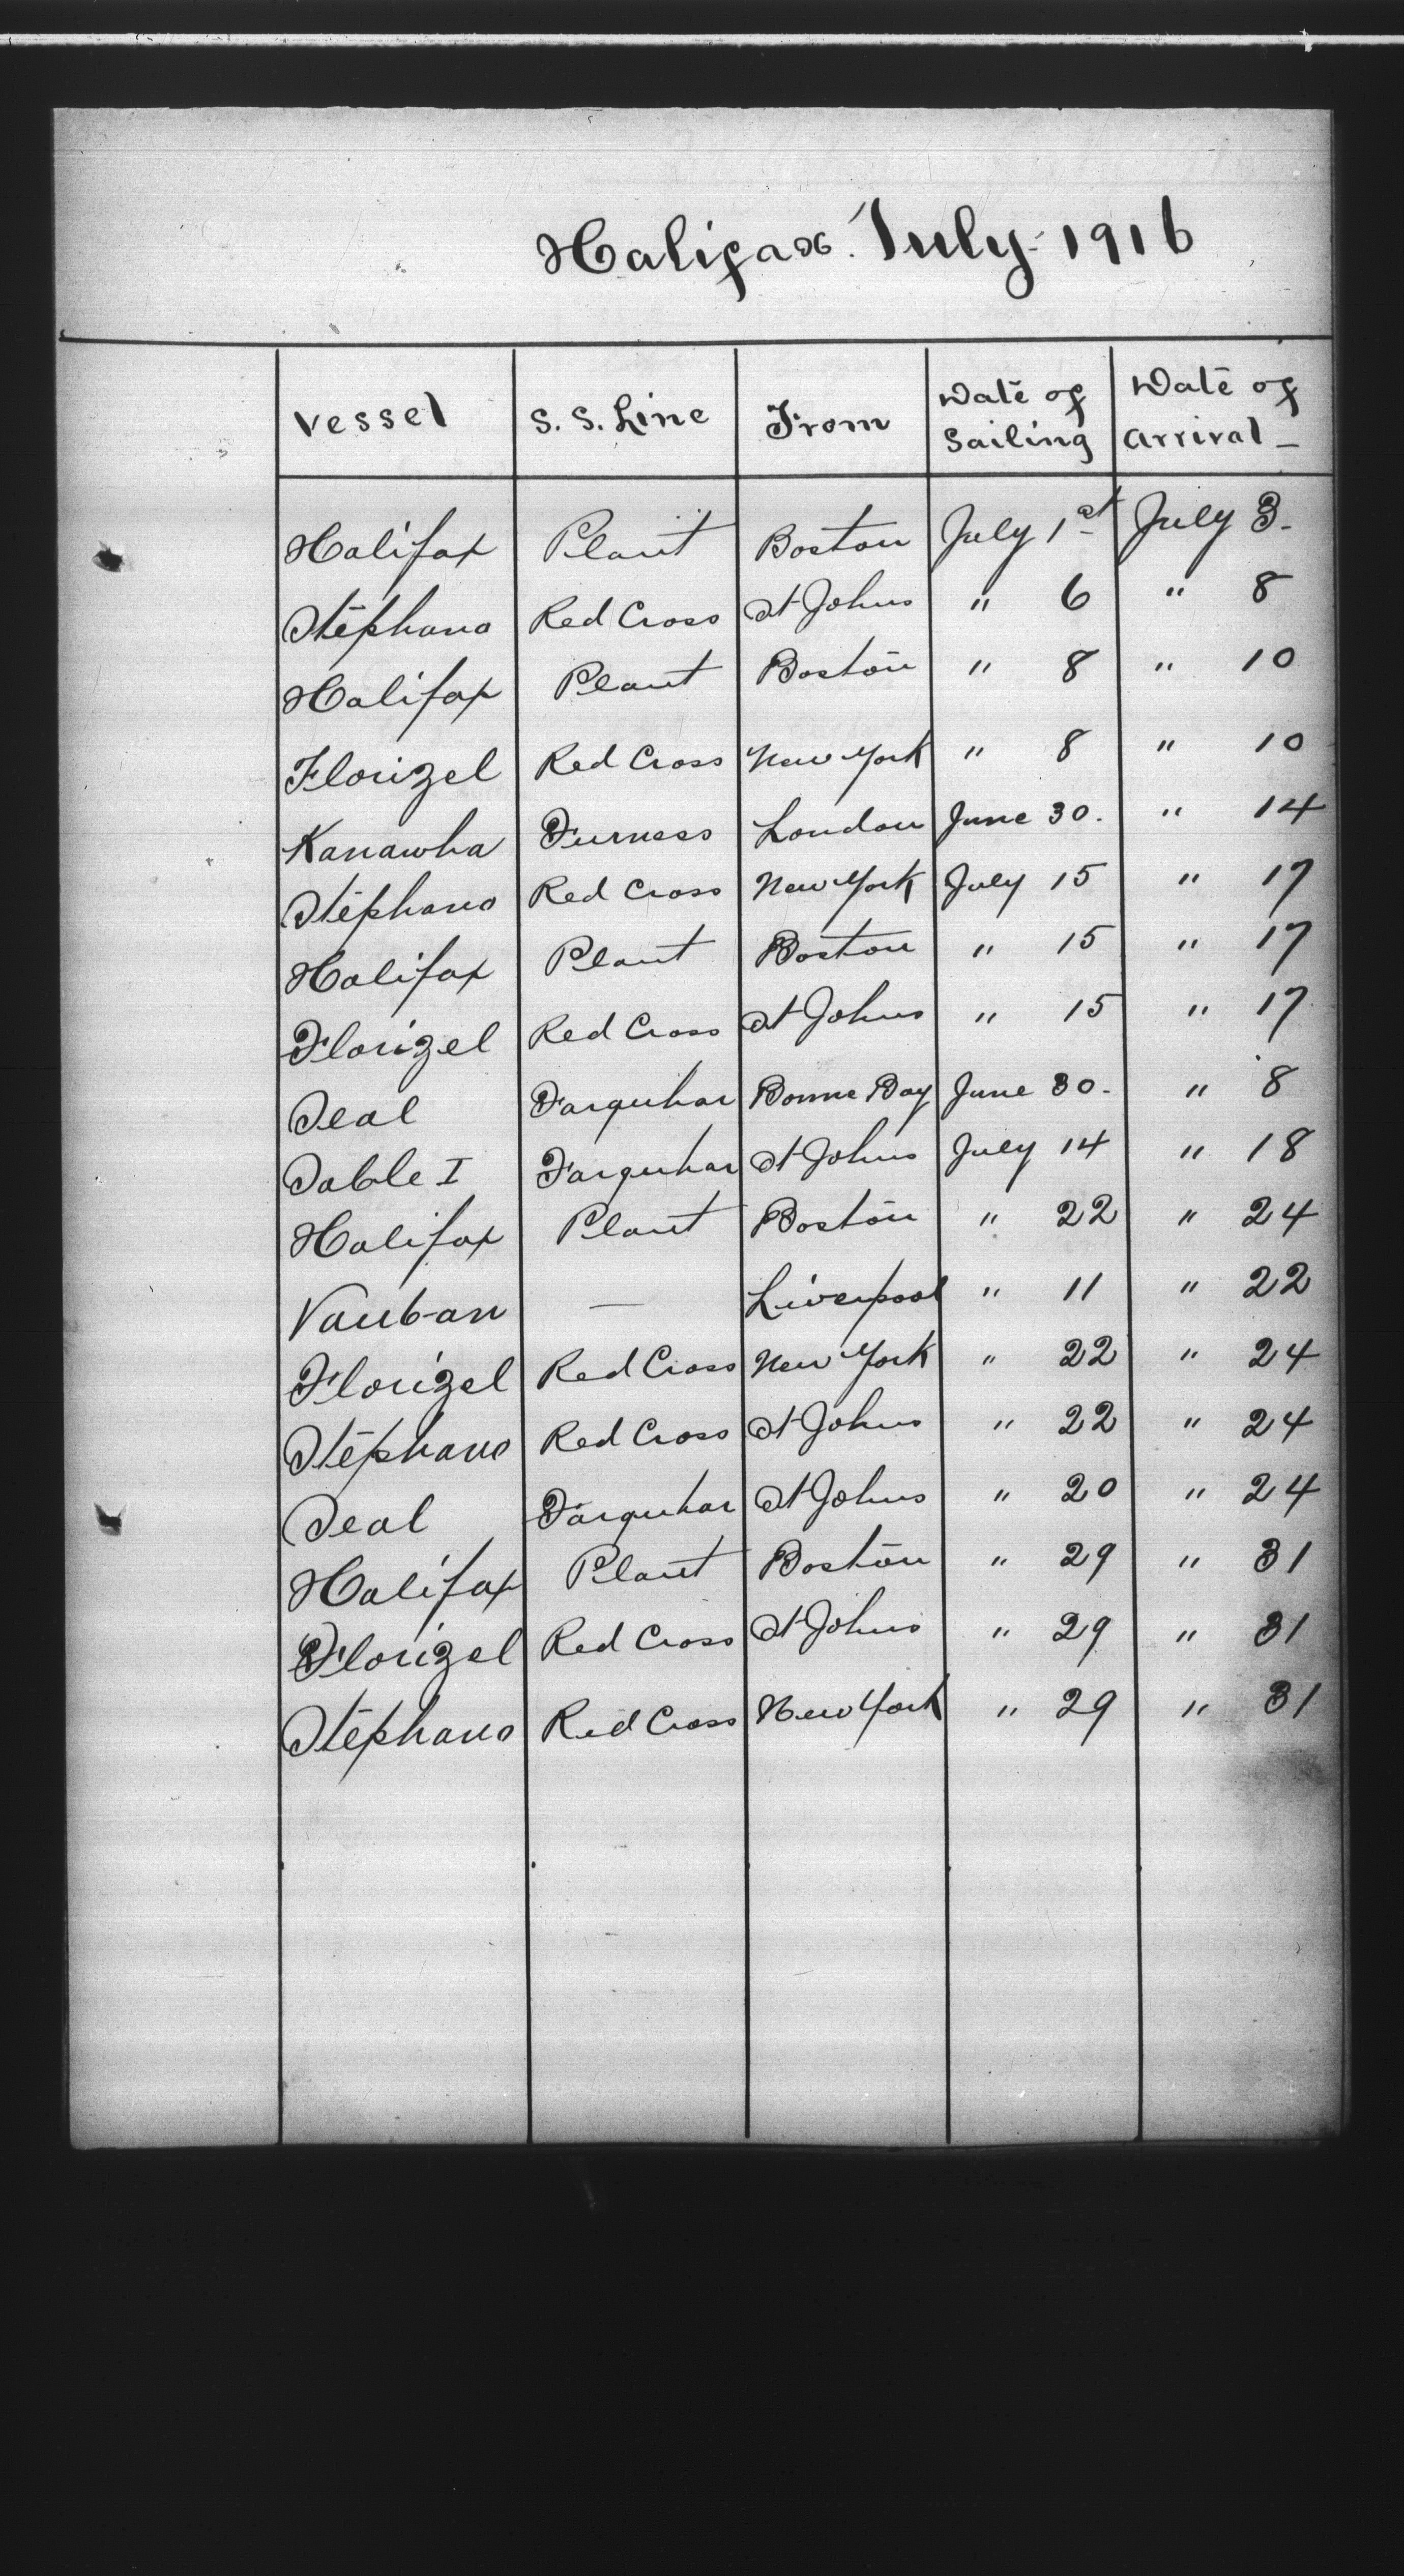 Halifax. July 1916
Vessel S. S. Line From Date of Sailing Date of Arrival –
Halifax Plant Boston July 1st July 3.
Stephano Red Cross St Johns " 6 " 8
Halifax Plant Boston " 8 " 10
Florizel Red Cross New York " 8 " 10
Kanawha Furness London June 30. " 14
Stephano Red Cross New York July 15 " 17
Halifax Plant Boston " 15 " 17
Florizel Red Cross St Johns " 15 " 17
Seal Farquhar Bonne Bay June 30. " 8
Sable I Farquhar St Johns July 14 " 18
Halifax Plant Boston " 22 " 24
Vauban — Liverpool " 11 " 22
Florizel Red Cross New York " 22 " 24
Stephano Red Cross St Johns " 22 " 24
Seal Farquhar St Johns " 20 " 24
Halifax Plant Boston " 29 " 31
Florizel Red Cross St Johns " 29 " 31
Stephano Red Cross New York " 29 " 31